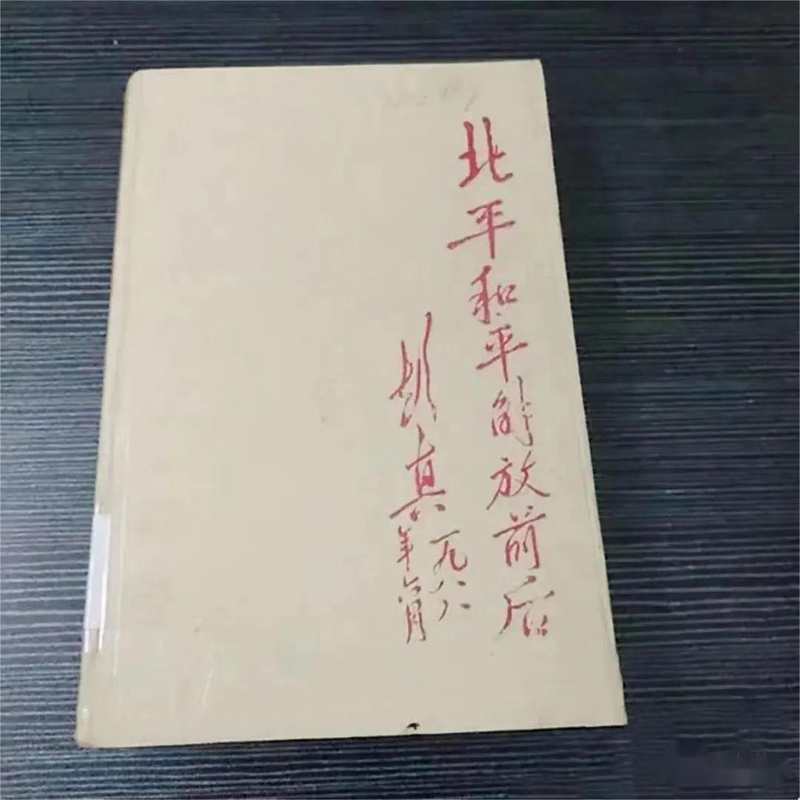 北平和平解放前后
彭真
一九八八
年六月